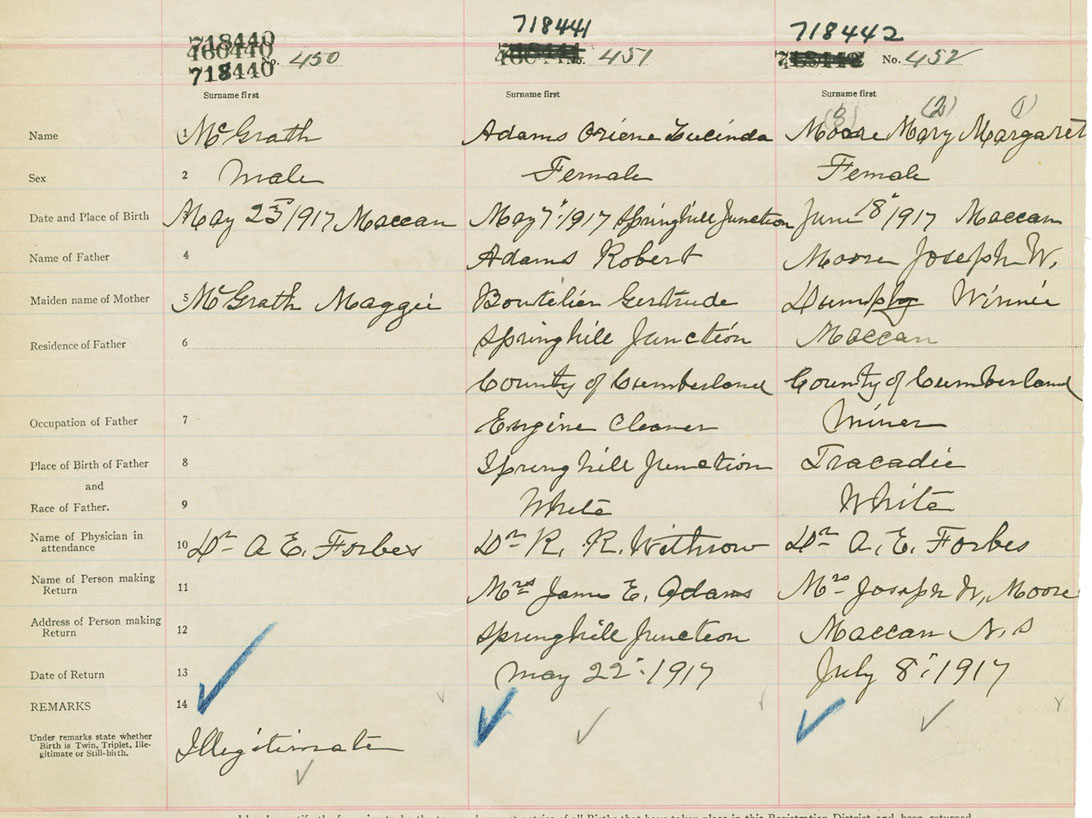 718441
718442
718440
460440
718440 No. 450
No. 451
No. 452
Surname first Surname first Surname first
(3) (2) (1)
Name 1 McGrath Adams Oriene Lucinda Moore Mary Margaret
Sex 2 Male Female Female
Date and Place of Birth May 23rd 1917 Maccan May 7" 1917 Springhill Junction June 18" 1917 Maccan
Name of Father 4 Adams Robert Moore Joseph W.
Maiden name of Mother 5 McGrath Maggie Boutelier Gertrude Winnie
Residence of Father 6 Springhill Junction Maccan
County of Cumberland County of Cumberland
Occupation of Father 7 Engine Cleaner Miner
Place of Birth of Father 8 Springhill Junction Tracadie
and
Race of Father. 9 White White
Name of Physician in
attendance 10 Dr A E. Forbes Dr R. R. Withrow Dr A. E. Forbes
Name of Person making
Return 11 Mrs James E. Adams Mrs Joseph W. Moore
Address of Person making
Return 12 Springhill Junction Maccan N.S
Date of Return 13 May 22" 1917 July 8" 1917
REMARKS 14
Under remarks state whether
Birth is Twin, Triplet, Ille-
gitimate or Still-birth. Illegitimate